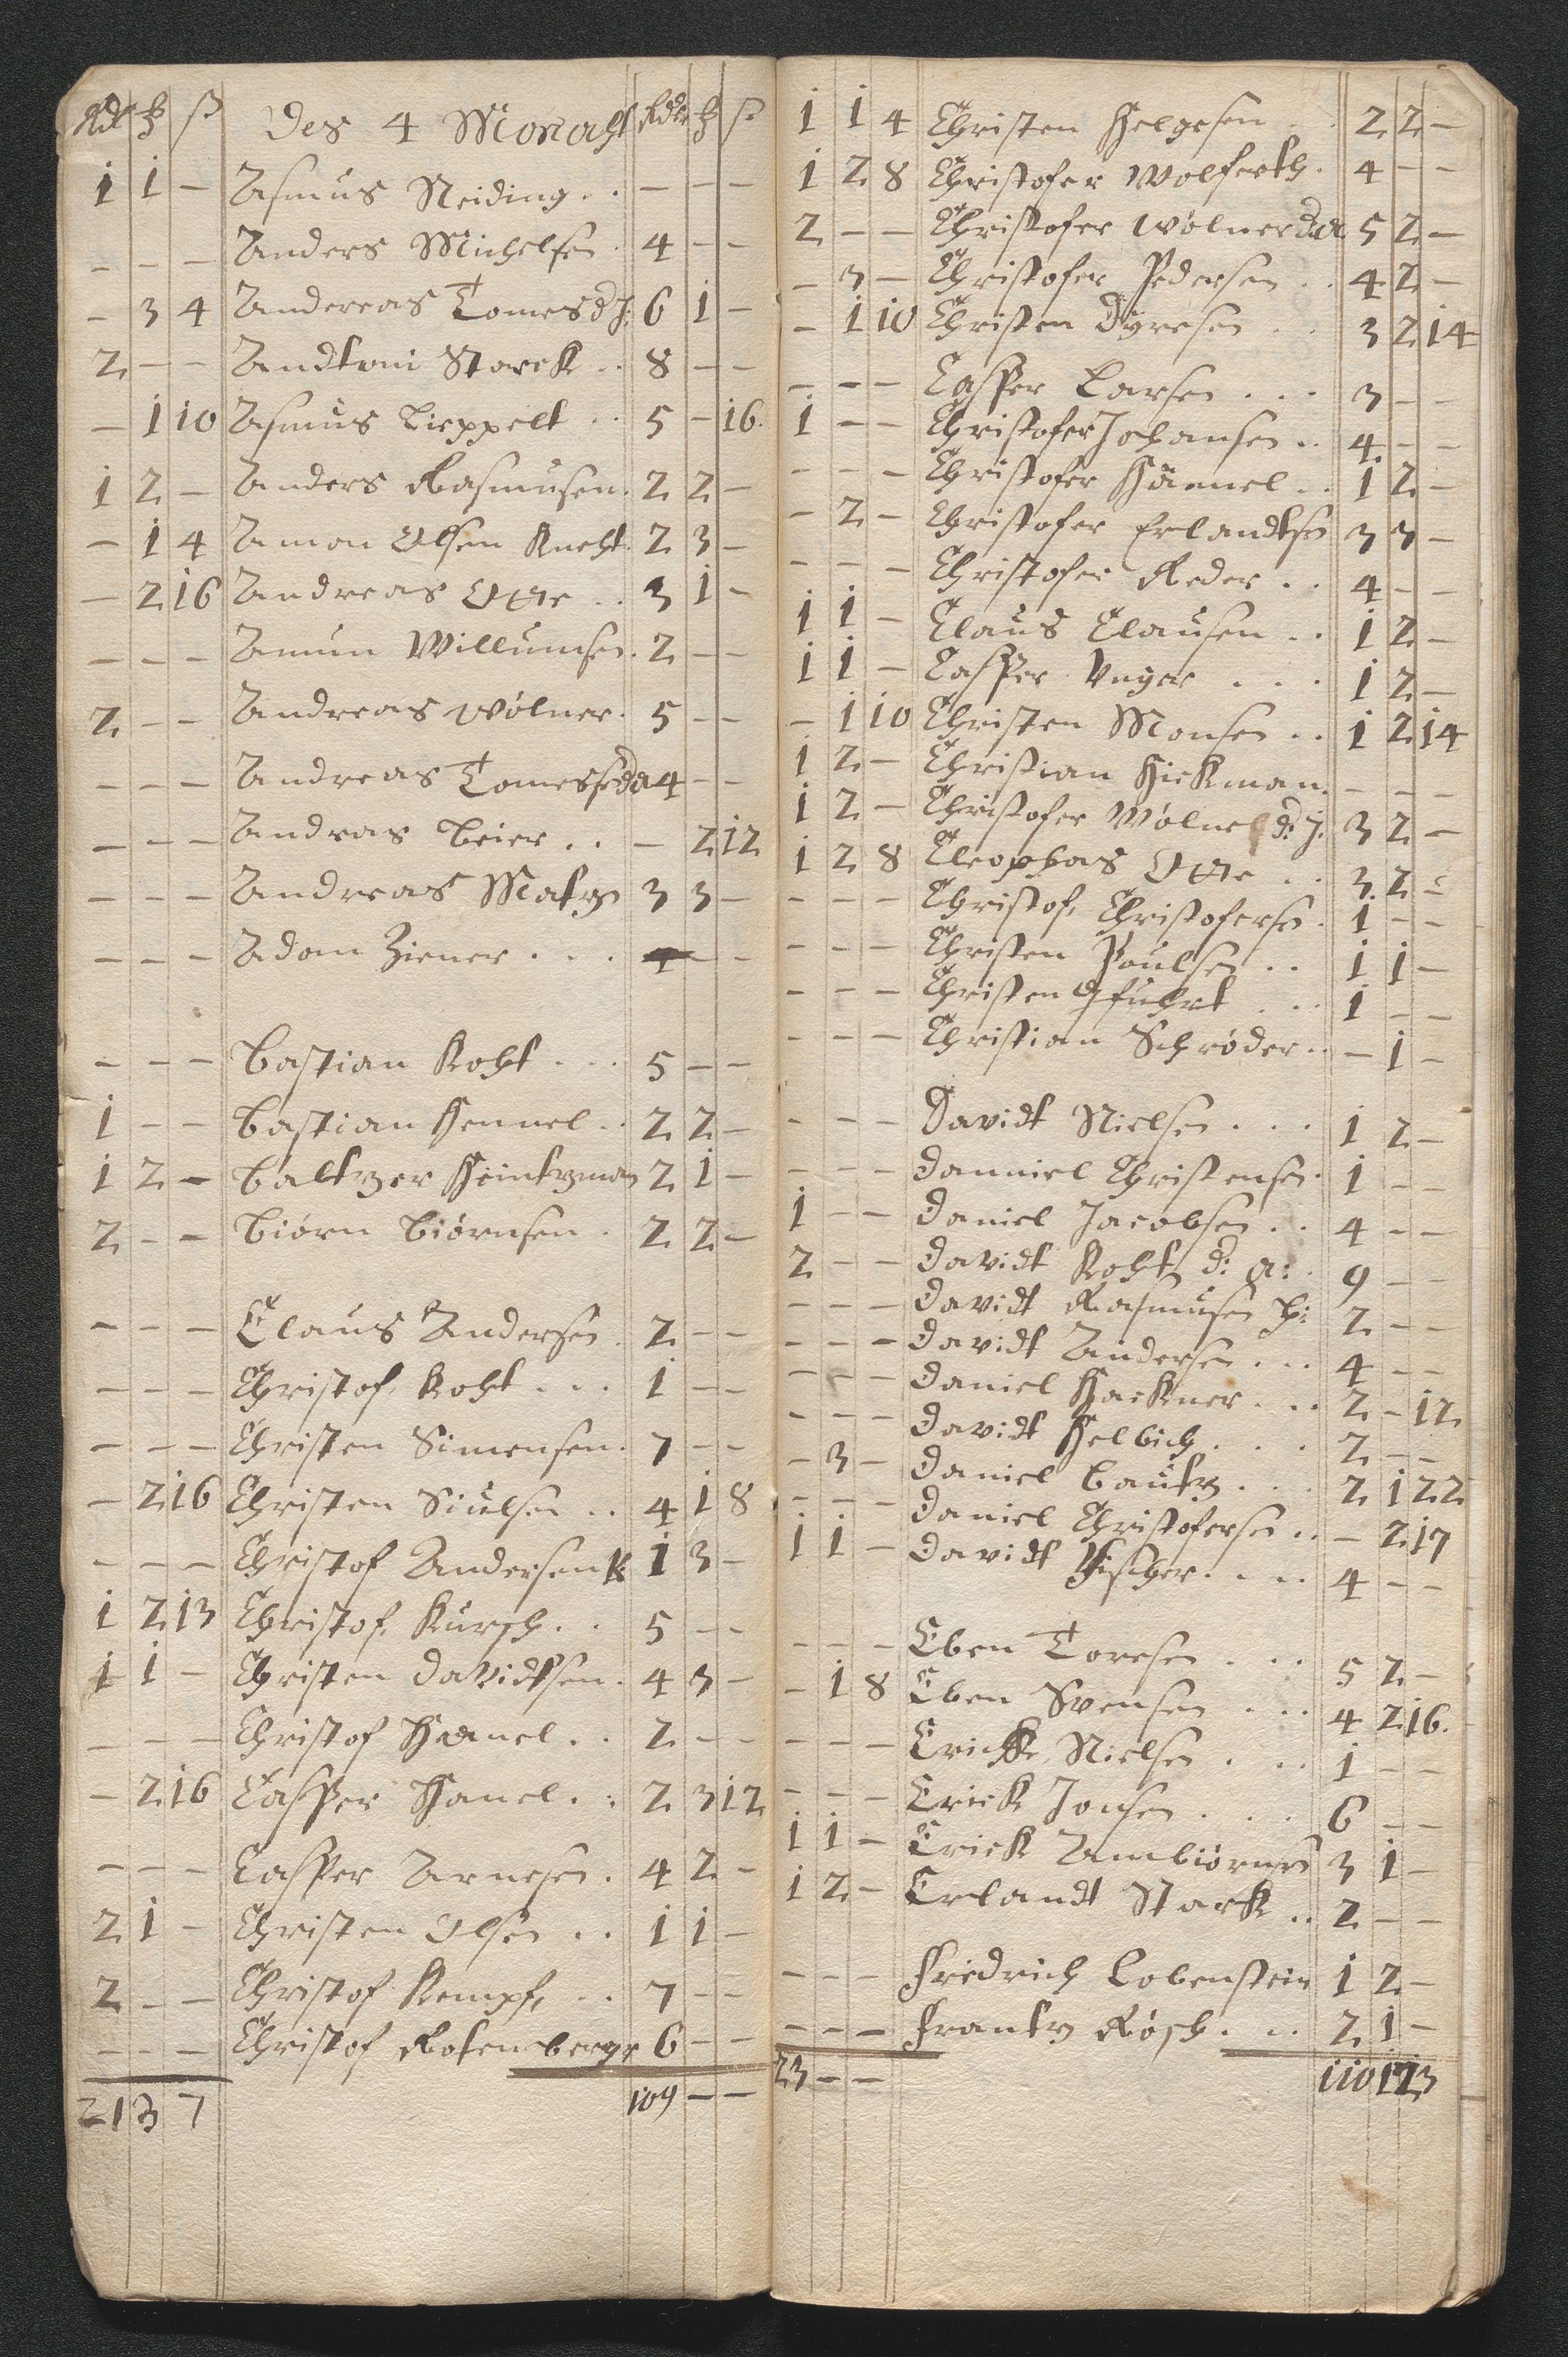 Rdl ß Des 4 Monaht Rdlr ß
1 1 – Asmus Neiding . . – – –
– – – Anders Michelsen . 4 – –
– 3 4 Andereas Tomes d J: 6 1 –
2 – – Andtoni Starck . . 8 – –
– 1 10 Asmus Lieppelt . . 5 – 16.
1 2 – Anders Rasmusen . 2 2 –
– 1 4 Amon Olsen Knecht . 2 3 –
– 2 16 Andreas Otte . . 3 1 –
– – – Amun Willumsen . 2 – –
2 – – Andreas Wølner . 5 – –
– – – Andreas Tomessen d a 4 – –
– – – Andras Beier . . – 2 12
– – – Andreas Matz 3 3 –
– – – Adam Ziener . . . – –
– – – Bastian Koht . . . 5 – –
1 – – Bastian Hennel . . 2 2 –
1 2 – Baltzer Heintzman 2 1 –
2 – – Biørn Biørnsen . 2 2 –
– – – Claus Andersen . 2 – –
– – – Christof, Koht . . . 1 – –
– – – Christen Simensen . 7 – –
– 2 16 Christen Siulsen . . 4 1 8
– – – Christof Andersen K 1 3 –
1 2 13 Christof, Kursch . . 5 – –
1 1 – Christen Davidtsen . 4 3 –
– – – Christof Hanel . . 2 – –
– 2 16 Casper Hanel . . 2 3 12
– – – Casper Arnesen . 4 2 –
2 1 – Christen Olsen . . 1 1 –
2 – – Christof Kempf, . . 7 – –
– – – Christof Rotenberger 6 – –
21 3 7 109 – –
1 1 4 Christen Helgesen . 2 2 –
1 2 8 Christofer Wolferth . 4 – –
2 – – Christofer Wølner d a 5 2 –
– 3 – Christofer Pedersen . . 4 2 –
– 1 10 Christen Dyresen . . 3 2 14
– – – Casper Larsen . . . 3 – –
1 – – Christofer Johansen . . 4 – –
– – – Christofer Hamel . . 1 2 –
– 2 – Christofer Erlandtsen 3 3 –
– – – Christofer Reder . . 4 – –
1 1 – Claus Clausen . . 1 2 –
1 1 – Casper Unger . . . 1 2 –
– 1 10 Christen Monsen . . 1 2 14
1 2 – Christian Hickman . – – –
1 2 – Christofer Wølnel d: J. 3 2 –
1 2 8 Cleophas Otte . . 3 2 –
– – – Christof, Christofersen . 1 – –
– – – Christen Poulsen . . 1 1 –
– – – Christen . . . 1 – –
– – – Christian Schrøder . . – 1 –
– – – Davidt Nielsen . . . 1 2 –
– – – Danniel Christensen . 1 – –
1 – – Daniel Jacobsen . . 4 – –
2 – – Davidt Koht d: a: . 9 – –
– – – Davidt Rasmusen 2 – –
– – – Davidt Andersen . . . 4 – –
– – – Daniel Hackner . . . 2 – 12
– – – Davidt Helbich . . . 2 – –
– 3 – Daniel Bautz . . . 2 1 22
– – – Daniel Christofersen . . – 2 17
1 1 – Davidt Fischer . . . . 4 – –
– – – Eben Toresen . . . 5 2 –
– 1 8 Eben Svensen . . . 4 2 16.
– – – Erick Nielsen . . . 1 – –
– – – Erick Jonsen . . . 6 – –
1 1 – Erick Ambiørnsen 3 1 –
1 2 – Erlandt Stark . . 2 – –
– – – Friedrich Lobenstein 1 2 –
– – – Frantz Røsch . . . 2 1 –
23 – – 110 1 23